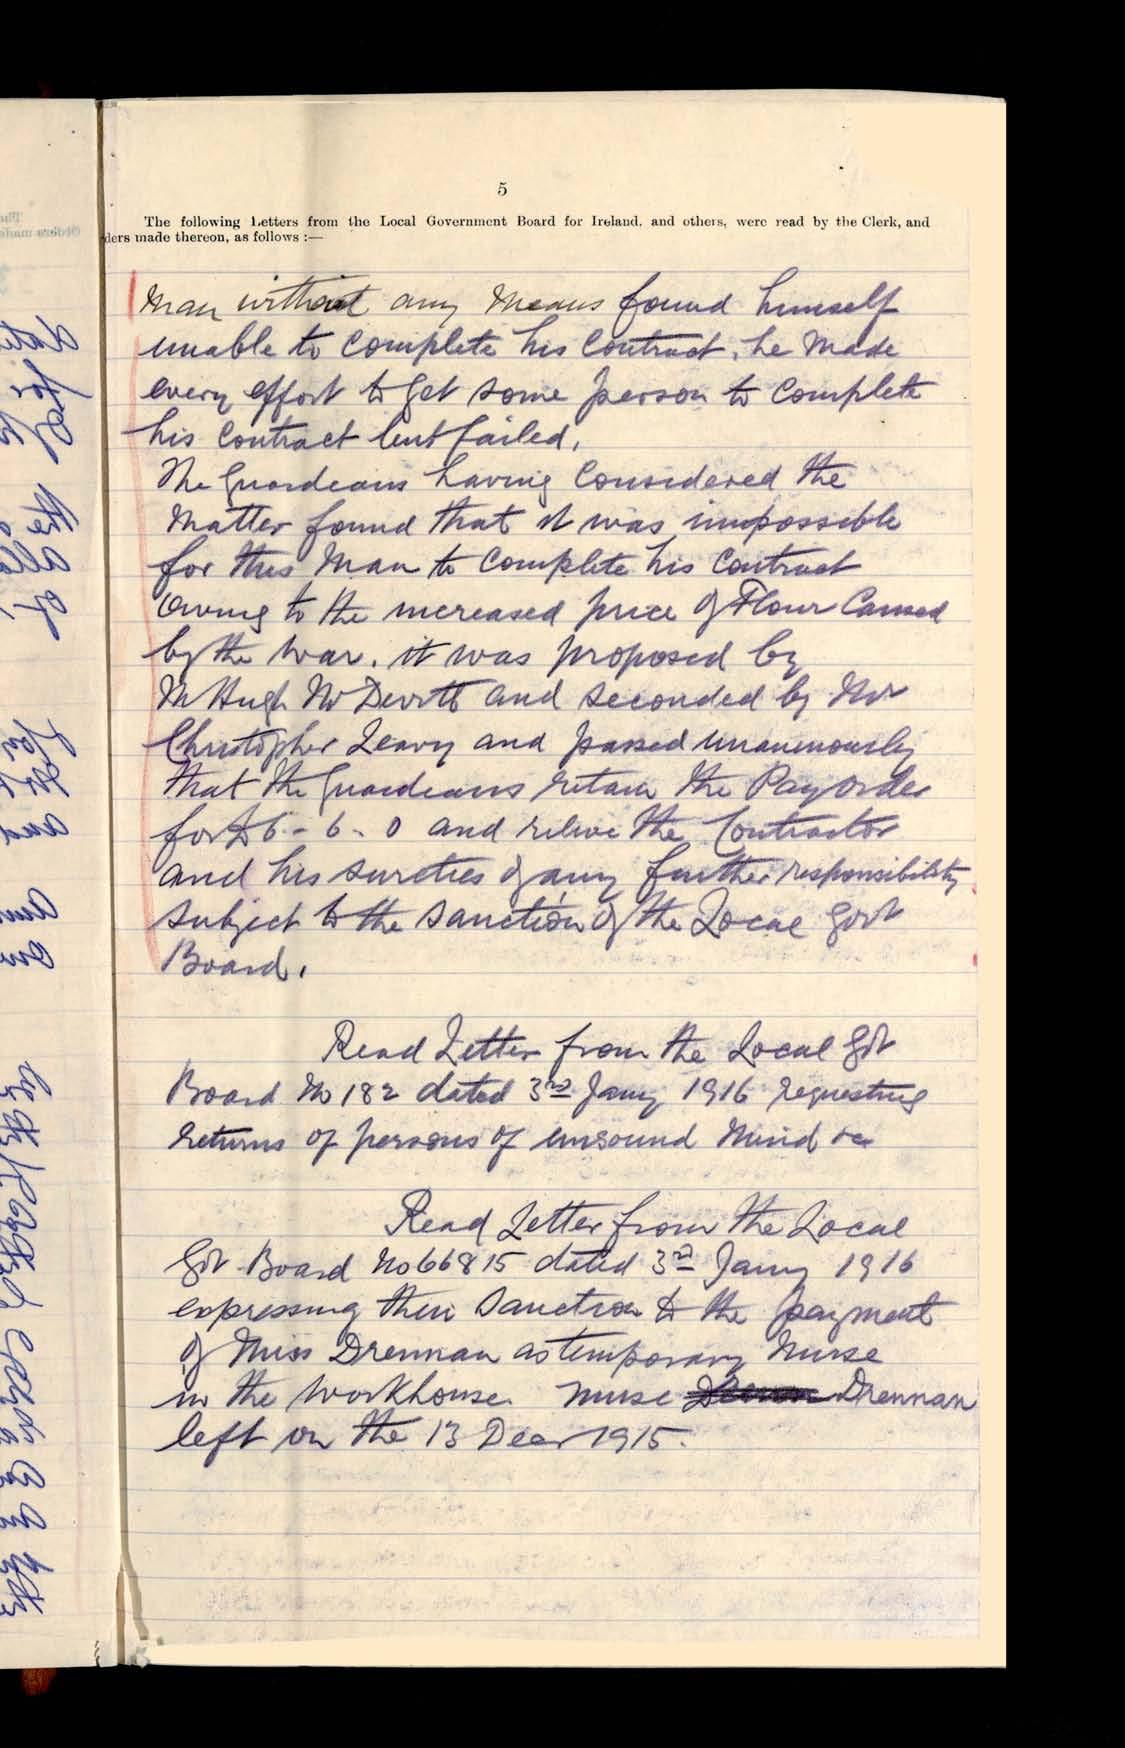 5
The following Letters from the Local Government Board for Ireland, and others, were read by the Clerk, and
ders made thereon, as follows :—
Man without any Means found himself
unable to complete his Contract, he Made
every effort to get some person to Complete
his Contract but failed.
The Guardians having Considered the
Matter found that it was impossible
for this Man to Complete his Contract
Owing to the increased price of Flour Caused
by the War. it was proposed by
Mr Hugh McDevitt and seconded by Mr
Christopher Leavy and passed unanimously
that the Guardians retain the Pay order
for £6 - 6 - 0 and relive the Contractor
and his sureties of any further responsibility
subject to the sanction of the Local Govt
Board.
Read Letter from the Local Gvt
Board No 182 dated 3rd Jany 1916 requesting
returns of persons of unsound Mind &c
Read Letter from the Local
Gvt Board No 66815 dated 3rd Jany 1916
expressing their Sanction to the payment
of Miss Drennan as temporary Nurse
in the Workhouse. Nurse Drennan
left on the 13 Decr 1915.